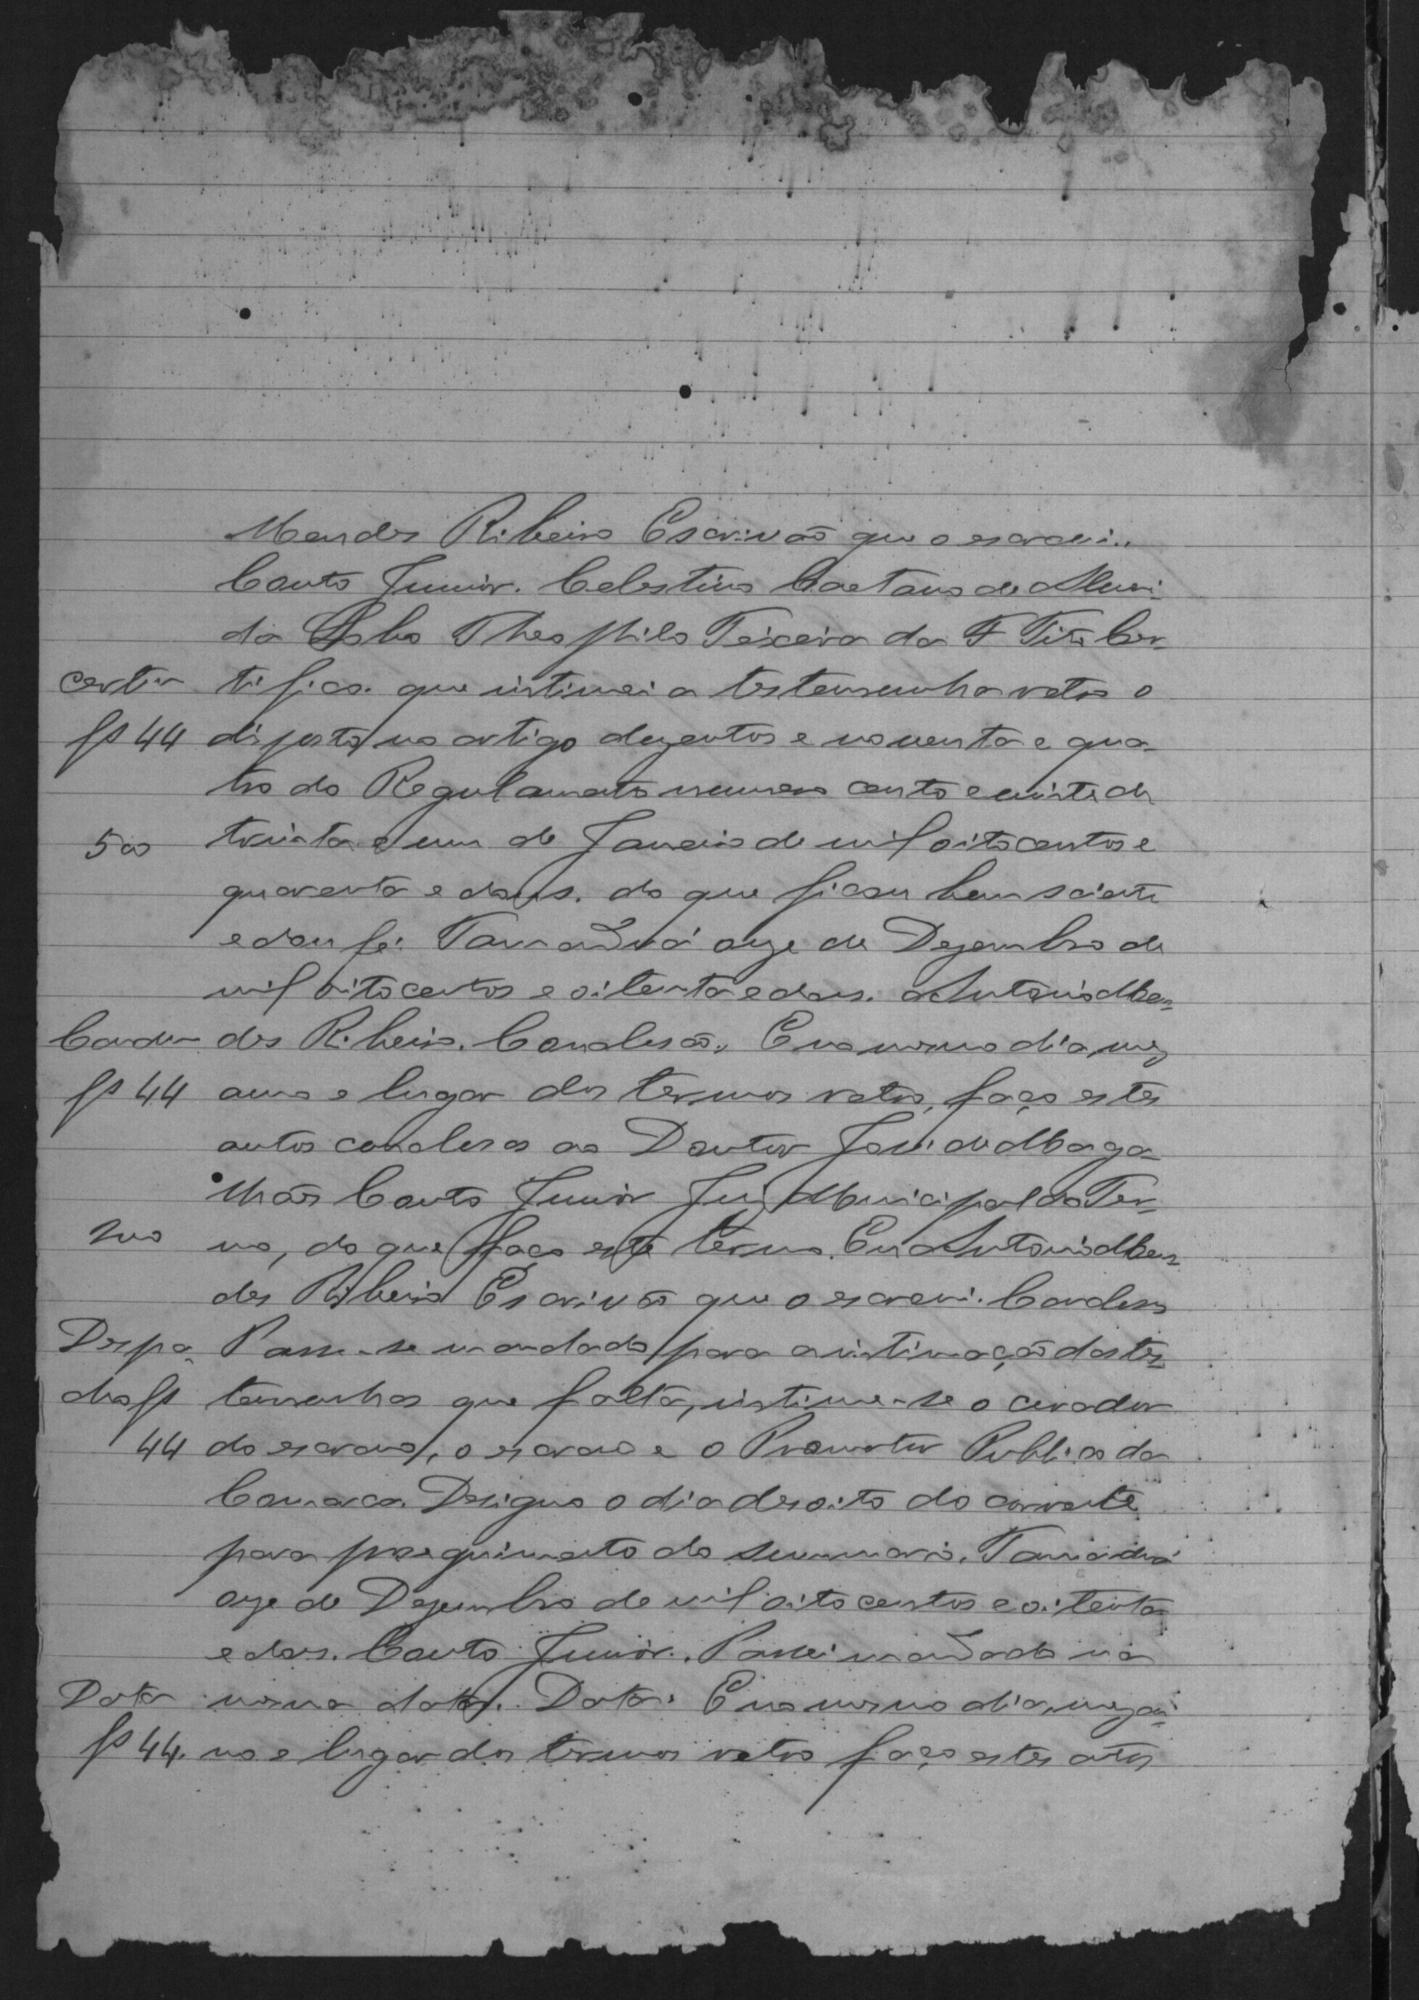 Mendes Ribeiro Escrivão que o escrevi..
Canto Junior. Celestino Caetano de Almei-
da Lobo Theophilo Teixeira da F Titi Cer-
certm tifico. que intimei a testemunha retro o
fs 44 disposto no artigo dezentos e noventa e qua-
tro do Regulamento numero cento e vinte de
500 trinta e um de Janeiro de mil oitocentos e
quarenta e dous. do que ficou bem sciente
e dou fé. Tamanduá onze de Dezembro de
mil oitocentos e oitenta e dous. Antonio Men-
Concln des Ribeiro. Conclusão, E no mesmo dia, mez
fs 44 anno e lugar dos termos retro, faço estes
autos conclusos ao Doutor José de Maga-
lhães Canto Junior Juiz Municipal do Ter-
200 mo, do que faço este termo. Eu Antonio Men-
des Ribeiro Escrivão que o escrevi. Conclusos
Despa- Passe-se mandado para a intimação das tes-
cho fs temunhas que falta, intime-se o curador
44 do escravo, o escravo e o Promotor Publico da
Comarca. Designo o dia desoito do corrente
para proseguimento do summario. Tamanduá
onze de Dezembro de mil oitocentos e oitenta
e dous. Canto Junior. Passei mandado na
Data mesma data. Data. E no mesmo dia, mez an-
fs 44. no e lugar dos termos retro faço estes autos